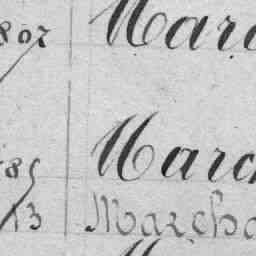 807 Marc
85 Marc
13 Marcha